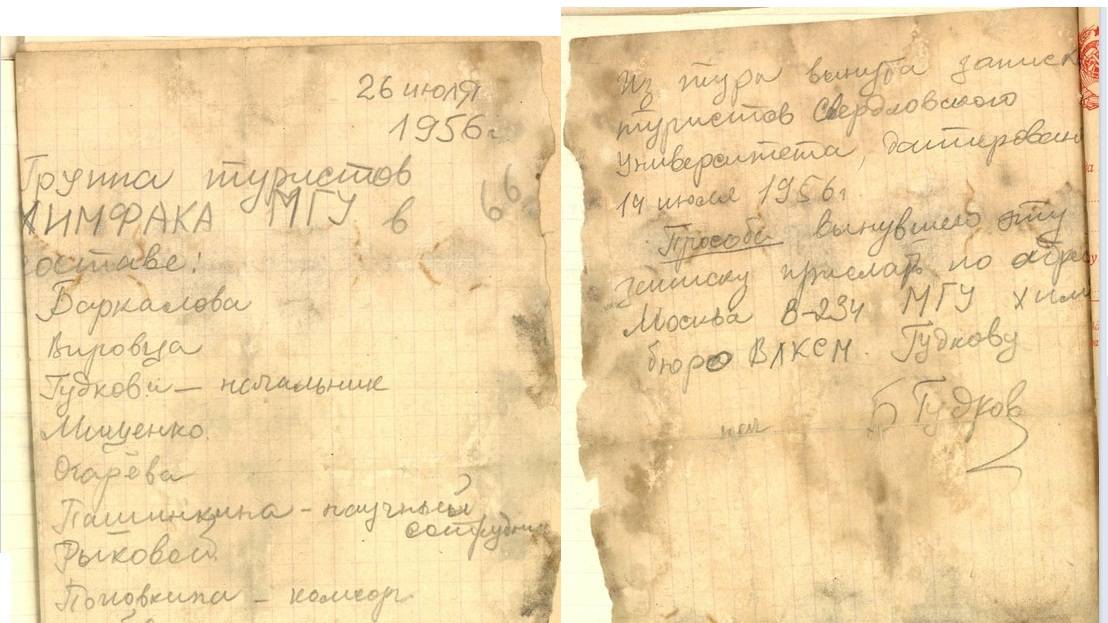 26 июля
1956г.
Группа туристов
ХИМФАКА МГУ в
66
составе:
Баркалова
Вировца
Гудкова — начальник
Мищенко
Огарёва
Пашинкина — научный
сотрудник
Рыковой
— комсорг
Из тура вынута записка
туристов Свердловского
Университета, датирован
14 июля 1956г
Просьба вынувшего эту
записку прислать по адресу
Москва В-234 МГУ хим
бюро ВЛКСМ. Гудкову
нач
Б Гудков